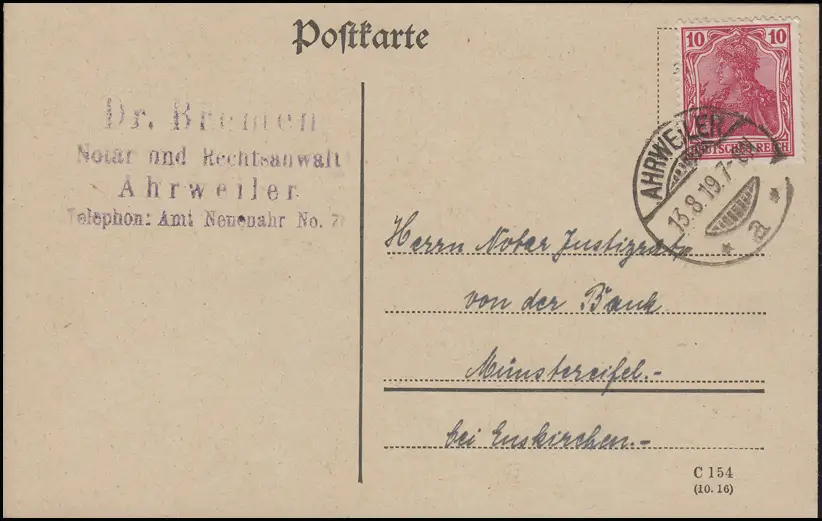 Postkarte
10 10
DEUTSCHES REICH
AHRWEILER
13.8.19.7-8V
* a *
Dr. Bremen
Notar und Rechtsanwalt
Ahrweiler
Telephon: Amt Neuenahr No.
Herrn Notar Justizrat
von der Bank
Münstereifel.-
bei Euskirchen.-
C 154
(10. 16)